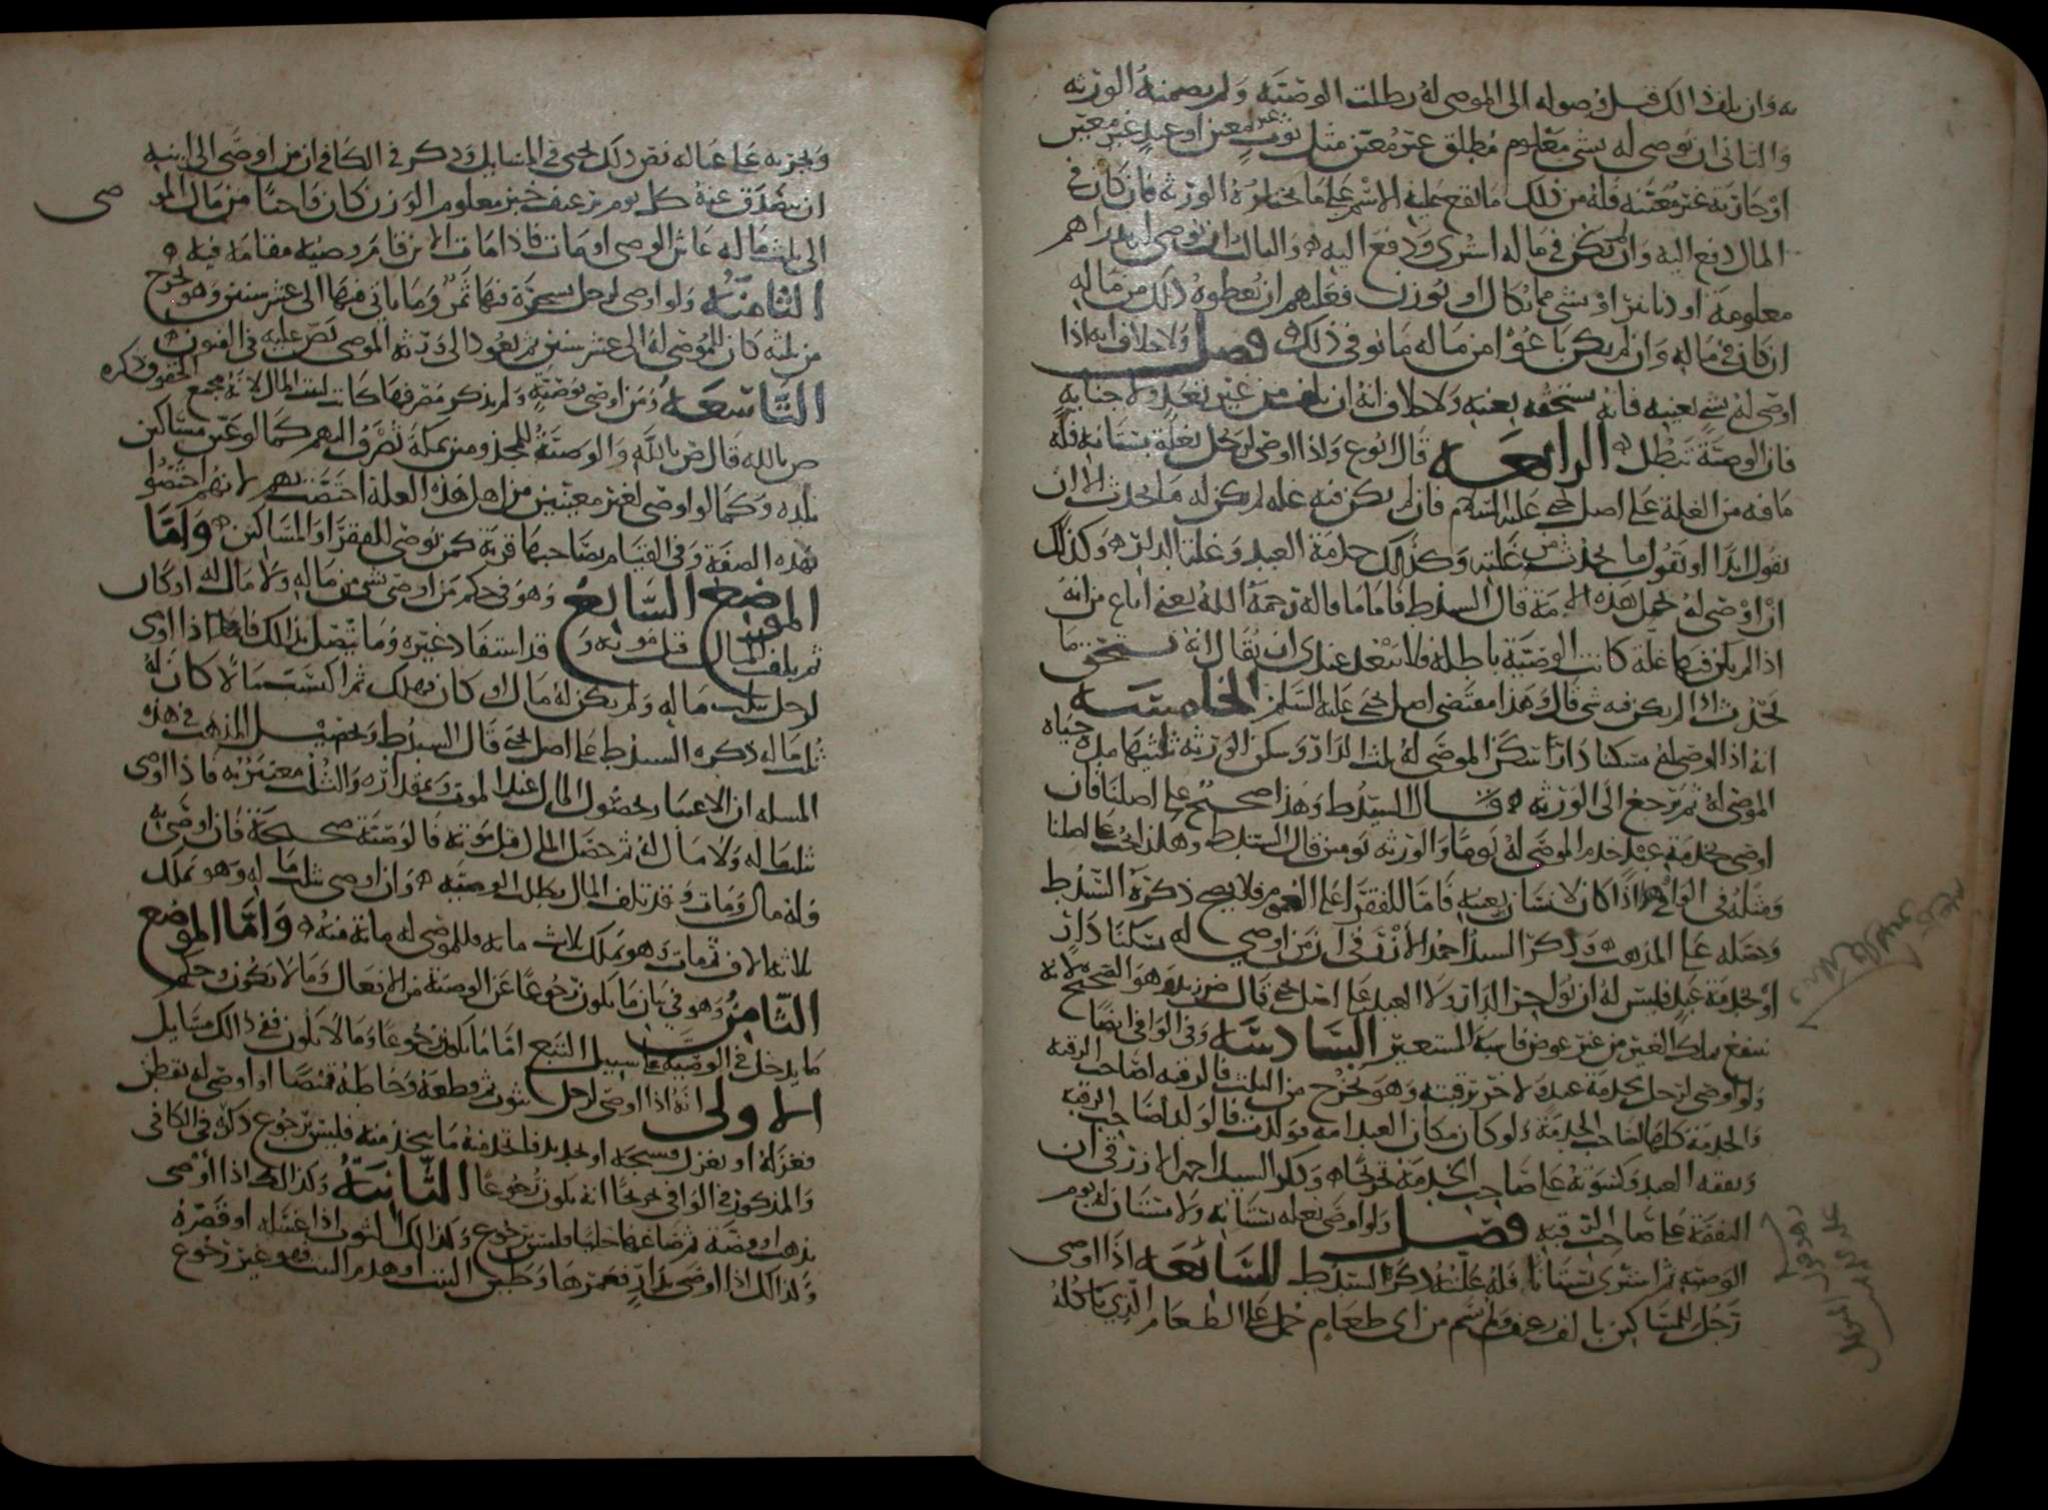 به وان تلف ذالك قبل وصوله الى الموصى له بطلت الوصية ولم يضمنه الورثه
والثانى ان يوصى له بشى معلوم مطلق غير معين مثل ثوب غير معين او عبد غير معين
او جارية غير معينه فله من ذلك ما يقع عليه الاسم على ما يختاره الورثه فان كان فى
المال دفع اليه وان لم يكن فى ماله اشترى ودفع اليه والثالث ان يوصى له بدراهم
معلومة او دنانير او شى مما يكال او يوزن فعليهم ان يعطوه ذلك من ماله
ان كان فى ماله وان لم يكن باعوا من ماله ما يوفى ذلك فصل ولا خلاف انه اذا
اوصى له بشى بعينه فانه يستحقه بعينه ولا خلاف انه ان تلف من غير تعد ولا جنايه
فان الوصية تبطل الرابعه قال ابو ع واذا اوصى لرجل بغلة بستانه فله
ما فيه من الغلة على اصل يحيى عليه السلم فان لم يكن فيه غله لم يكن له ما يحدث الا ان
يقول ابدا او يقول ما يحدث من غلته وكذلك خدمة العبد وغلة الدار وكذلك
ان اوصى له بحمل هذه الامة قال السيد ط فاما ما قاله رحمة الله يعنى اباع من انه
اذا لم يكن فيها غلة كانت الوصية باطلة فلا يبعد عندى ان يقال انه يستحق ما
يحدث اذا لم يكن فيه شى قال وهذا مقتضى اصل يحيى عليه السلم الخامسه
انه اذا اوصى له بسكنا دار سكن الموصى له ثلث الدار وسكن الورثه ثلثيها مدة حياه
الموصى له ثم ترجع الى الورثه قال السيد ط وهذا صحيح على اصلنا فان
اوصى بخدمة عبد خدم الموصى له يوما والورثه يومين قال السيد ط وهكذا يجب على اصلنا
ومثله فى الوافى هذا اذا كان لانسان بعينه فاما للفقرا على العموم فلا يصح ذكره السيد ط
وحصله على المذهب وذكر السيد احمد الازرقى ان من اوصى له بسكنا دار
او بخدمة عبد فليس له ان يواجر الدار ولا العبد على اصل يحيى قال ض زيد وهو الصحيح لانه
ينتفع بملك الغير من غير عوض فاشبه المستعير السادسه وفى الوافى ايضا
ولو اوصى لرجل بخدمة عبده ولاخر برقبته وهو يخرج من الثلث فالرقبه لصاحب الرقبه
والخدمة كلها لصاحب الخدمة ولو كان مكان العبد امه فولدت فالولد لصاحب الرقبه
ونفقه العبد وكسوته على صاحب الخدمة تخريجا وذكر السيد احمد الازرقى ان
النفقة على صاحب الرقبه فصل ولو اوصى بغله بستانه ولا بستان له يوم
الوصيه ثم اشترى بستانا فله غلته ذكره السيد ط السابعه اذا اوصى
رجل للمساكين بالف رغيف ولم يسم من اى طعام حمل على الطعام الذى ياكله
ويجزيه على عياله نص ذلك يحيى فى المسايل وذكر فى الكافى ان من اوصى الى ابنه
ان يتصدق عنه كل يوم برغيف خبز معلوم الوزن كان واجبا من مال الموصى
الى ثلث ماله عاش الوصى او مات فاذا مات الابن قام وصيه مقامه فيه
الثامنه ولو اوصى لرجل بشجرة فيها ثمر وما ياتى فيها الى عشر سنين وهو يخرج
من ثلثه كان للموصى له الى عشر سنين ثم يعود الى ورثة الموصى نص عليه فى الفنون
التاسعه ومن اوصى بوصية ولم يذكر مصرفها كانت لبيت المال لانه مجمع الحقوق ذكره
ض بالله قال ض بالله والوصية للمجذومين بمكة تصرف اليهم كما لو عين مساكين
بلده وكما لو اوصى لغير معينين من اهل هذه العلة اختصت بهم لانهم اختصوا
بهذه الصفة وفى القيام بصاحبها قربة كمن يوصى للفقرا والمساكين واما
الموضع السابع وهو فى حكم من اوصى بشى من ماله ولا مال له او كان
ثم يتلف المال قبل موته و قد استفاد غيره وما يتصل بذالك فاما اذا اوصى
لرجل بثلث ماله ولم يكن له مال او كان فهلك ثم اكتسب مالا كان له
ثلث ماله ذكره السيد ط على اصل يحيى قال السيد ط وتحصيل المذهب فى هذه
المسله ان الاعتبار بحصول المال عند الموت وبمقداره والثلث معتبر به فاذا اوصى
بثلث ماله ولا مال له ثم حصل المال قبل موته فالوصية صحيحة فان اوصى به
وله مال ومات وقد تلف المال بطلت الوصيه وان اوصى بثلث ماله وهو يملك
ثلاثه الاف ثم مات وهو يملك ثلاث مائه فللموصى له مائة منه واما الموضع
الثامن وهو فى بيان ما يكون رجوعا عن الوصية من الافعال وما لا يكون وحكم
ما يدخل فى الوصية على سبيل التبع اما ما يكون رجوعا وما لا يكون ففى ذالك مسايل
الاولى انه اذا اوصى لرجل بثوب ثم قطعه وخاطه قميصا او اوصى له بقطن
فغزله او بغزل فنسجه او بحديد فاتخذ منه ما يتخذ منه فليس برجوع ذكره فى الكافى
والمذكور فى الوافى تخريجا انه يكون رجوعا الثانية وكذالك اذا اوصى
بذهب او فضة ثم صاغها حليا فليس برجوع وكذالك الثوب اذا غسله او قصره
وكذالك اذا اوصى بدار فعمرها وطين البيت او هدم البيت فهو غير رجوع